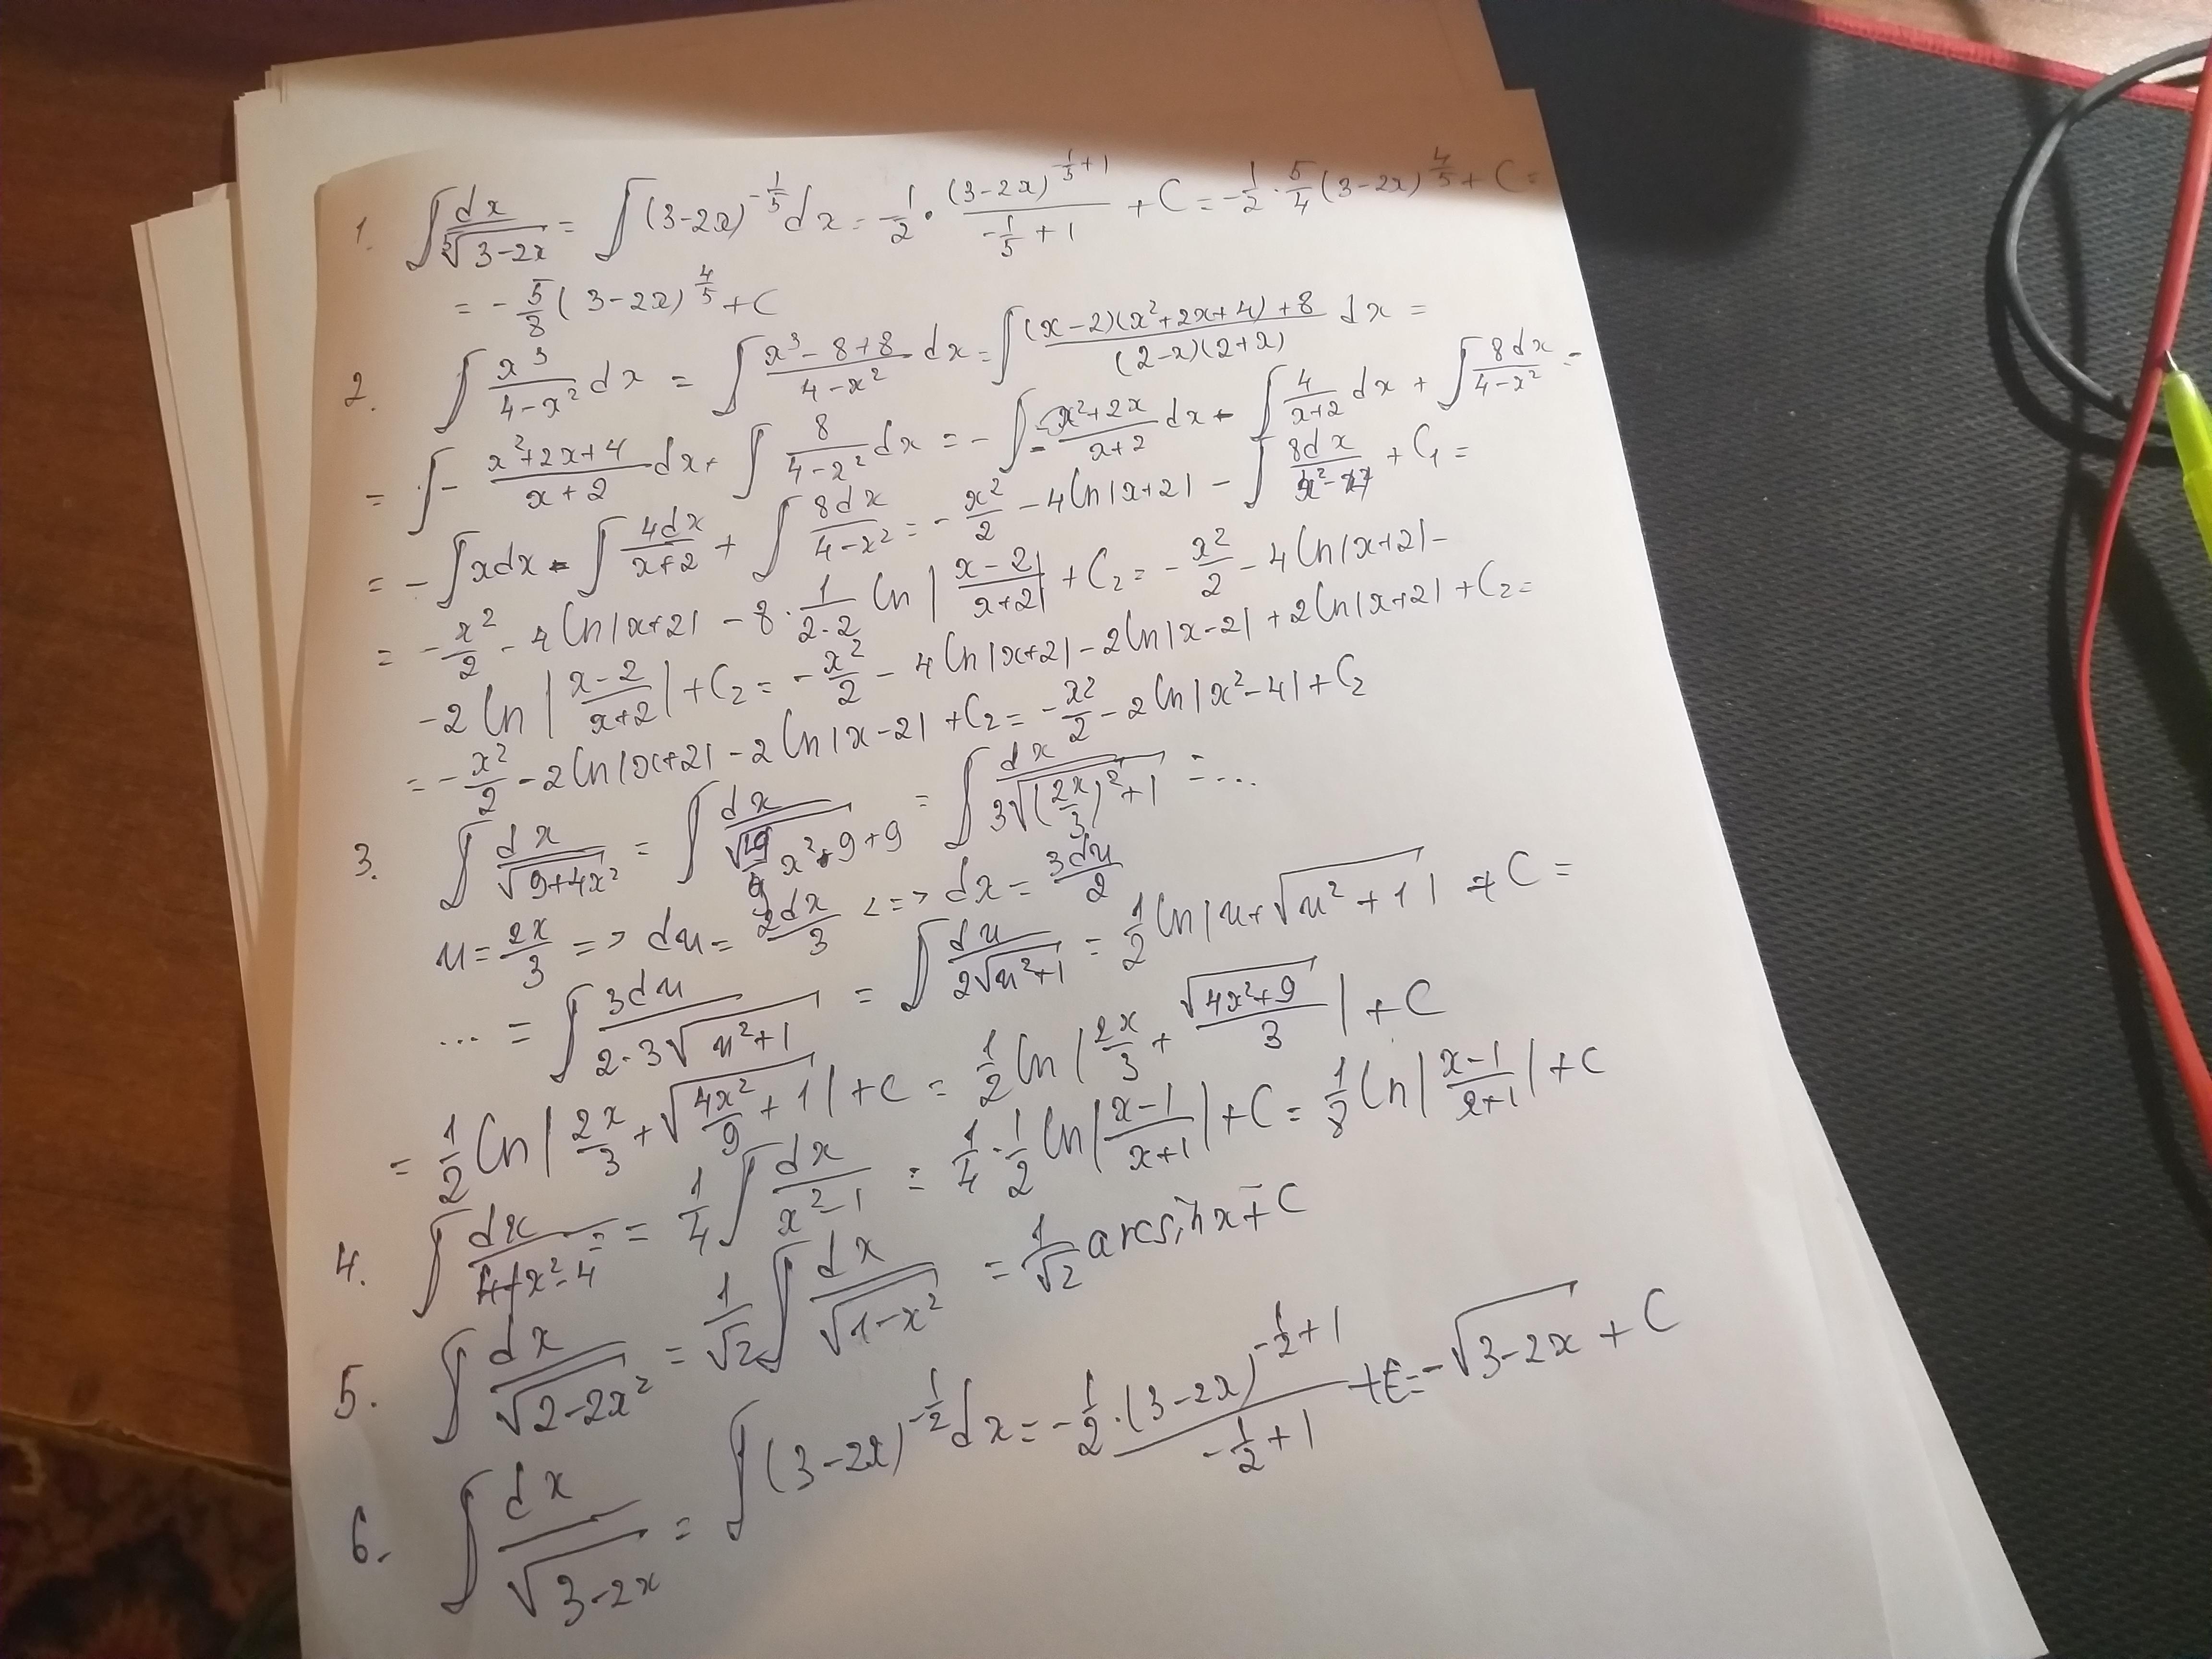 1. ∫ dx/⁵√(3-2x) = ∫ (3-2x)^(-1/5) dx = -1/2 · (3-2x)^(-1/5+1)/(-1/5+1) + C = -1/2 · 5/4 (3-2x)^(4/5) + C =
= -5/8 (3-2x)^(4/5) + C
2. ∫ x³/(4-x²) dx = ∫ (x³-8+8)/(4-x²) dx = ∫ ((x-2)(x²+2x+4)+8)/((2-x)(2+x)) dx =
= ∫ - (x²+2x+4)/(x+2) dx + ∫ 8/(4-x²) dx = - ∫ (x²+2x)/(x+2) dx - ∫ 4/(x+2) dx + ∫ 8dx/(4-x²) =
= - ∫ xdx - ∫ 4dx/(x+2) + ∫ 8dx/(4-x²) = - x²/2 - 4 ln|x+2| - ∫ 8dx/(x²-4) + C₁ =
= - x²/2 - 4 ln|x+2| - 8 · 1/(2·2) ln|(x-2)/(x+2)| + C₂ = - x²/2 - 4 ln|x+2| -
-2 ln|(x-2)/(x+2)| + C₂ = - x²/2 - 4 ln|x+2| - 2 ln|x-2| + 2 ln|x+2| + C₂ =
= - x²/2 - 2 ln|x+2| - 2 ln|x-2| + C₂ = - x²/2 - 2 ln|x²-4| + C₂
3. ∫ dx/√(9+4x²) = ∫ dx/√( x²·9+9 = ∫ dx/(3√((2x/3)²+1)) = ...
u = 2x/3 => du = 2dx/3 <=> dx = 3du/2
... = ∫ 3du/(2·3√(u²+1)) = ∫ du/(2√(u²+1)) = 1/2 ln|u+√(u²+1)| + C =
= 1/2 ln|2x/3 + √(4x²/9 + 1)| + C = 1/2 ln|2x/3 + √(4x²+9)/3| + C
4. ∫ dx/(4x²-4) = 1/4 ∫ dx/(x²-1) = 1/4 · 1/2 ln|(x-1)/(x+1)| + C = 1/8 ln|(x-1)/(x+1)| + C
5. ∫ dx/√(2-2x²) = 1/√2 ∫ dx/√(1-x²) = 1/√2 arcsin x + C
6. ∫ dx/√(3-2x) = ∫ (3-2x)^(-1/2) dx = -1/2 · (3-2x)^(-1/2+1)/(-1/2+1) + C = -√(3-2x) + C